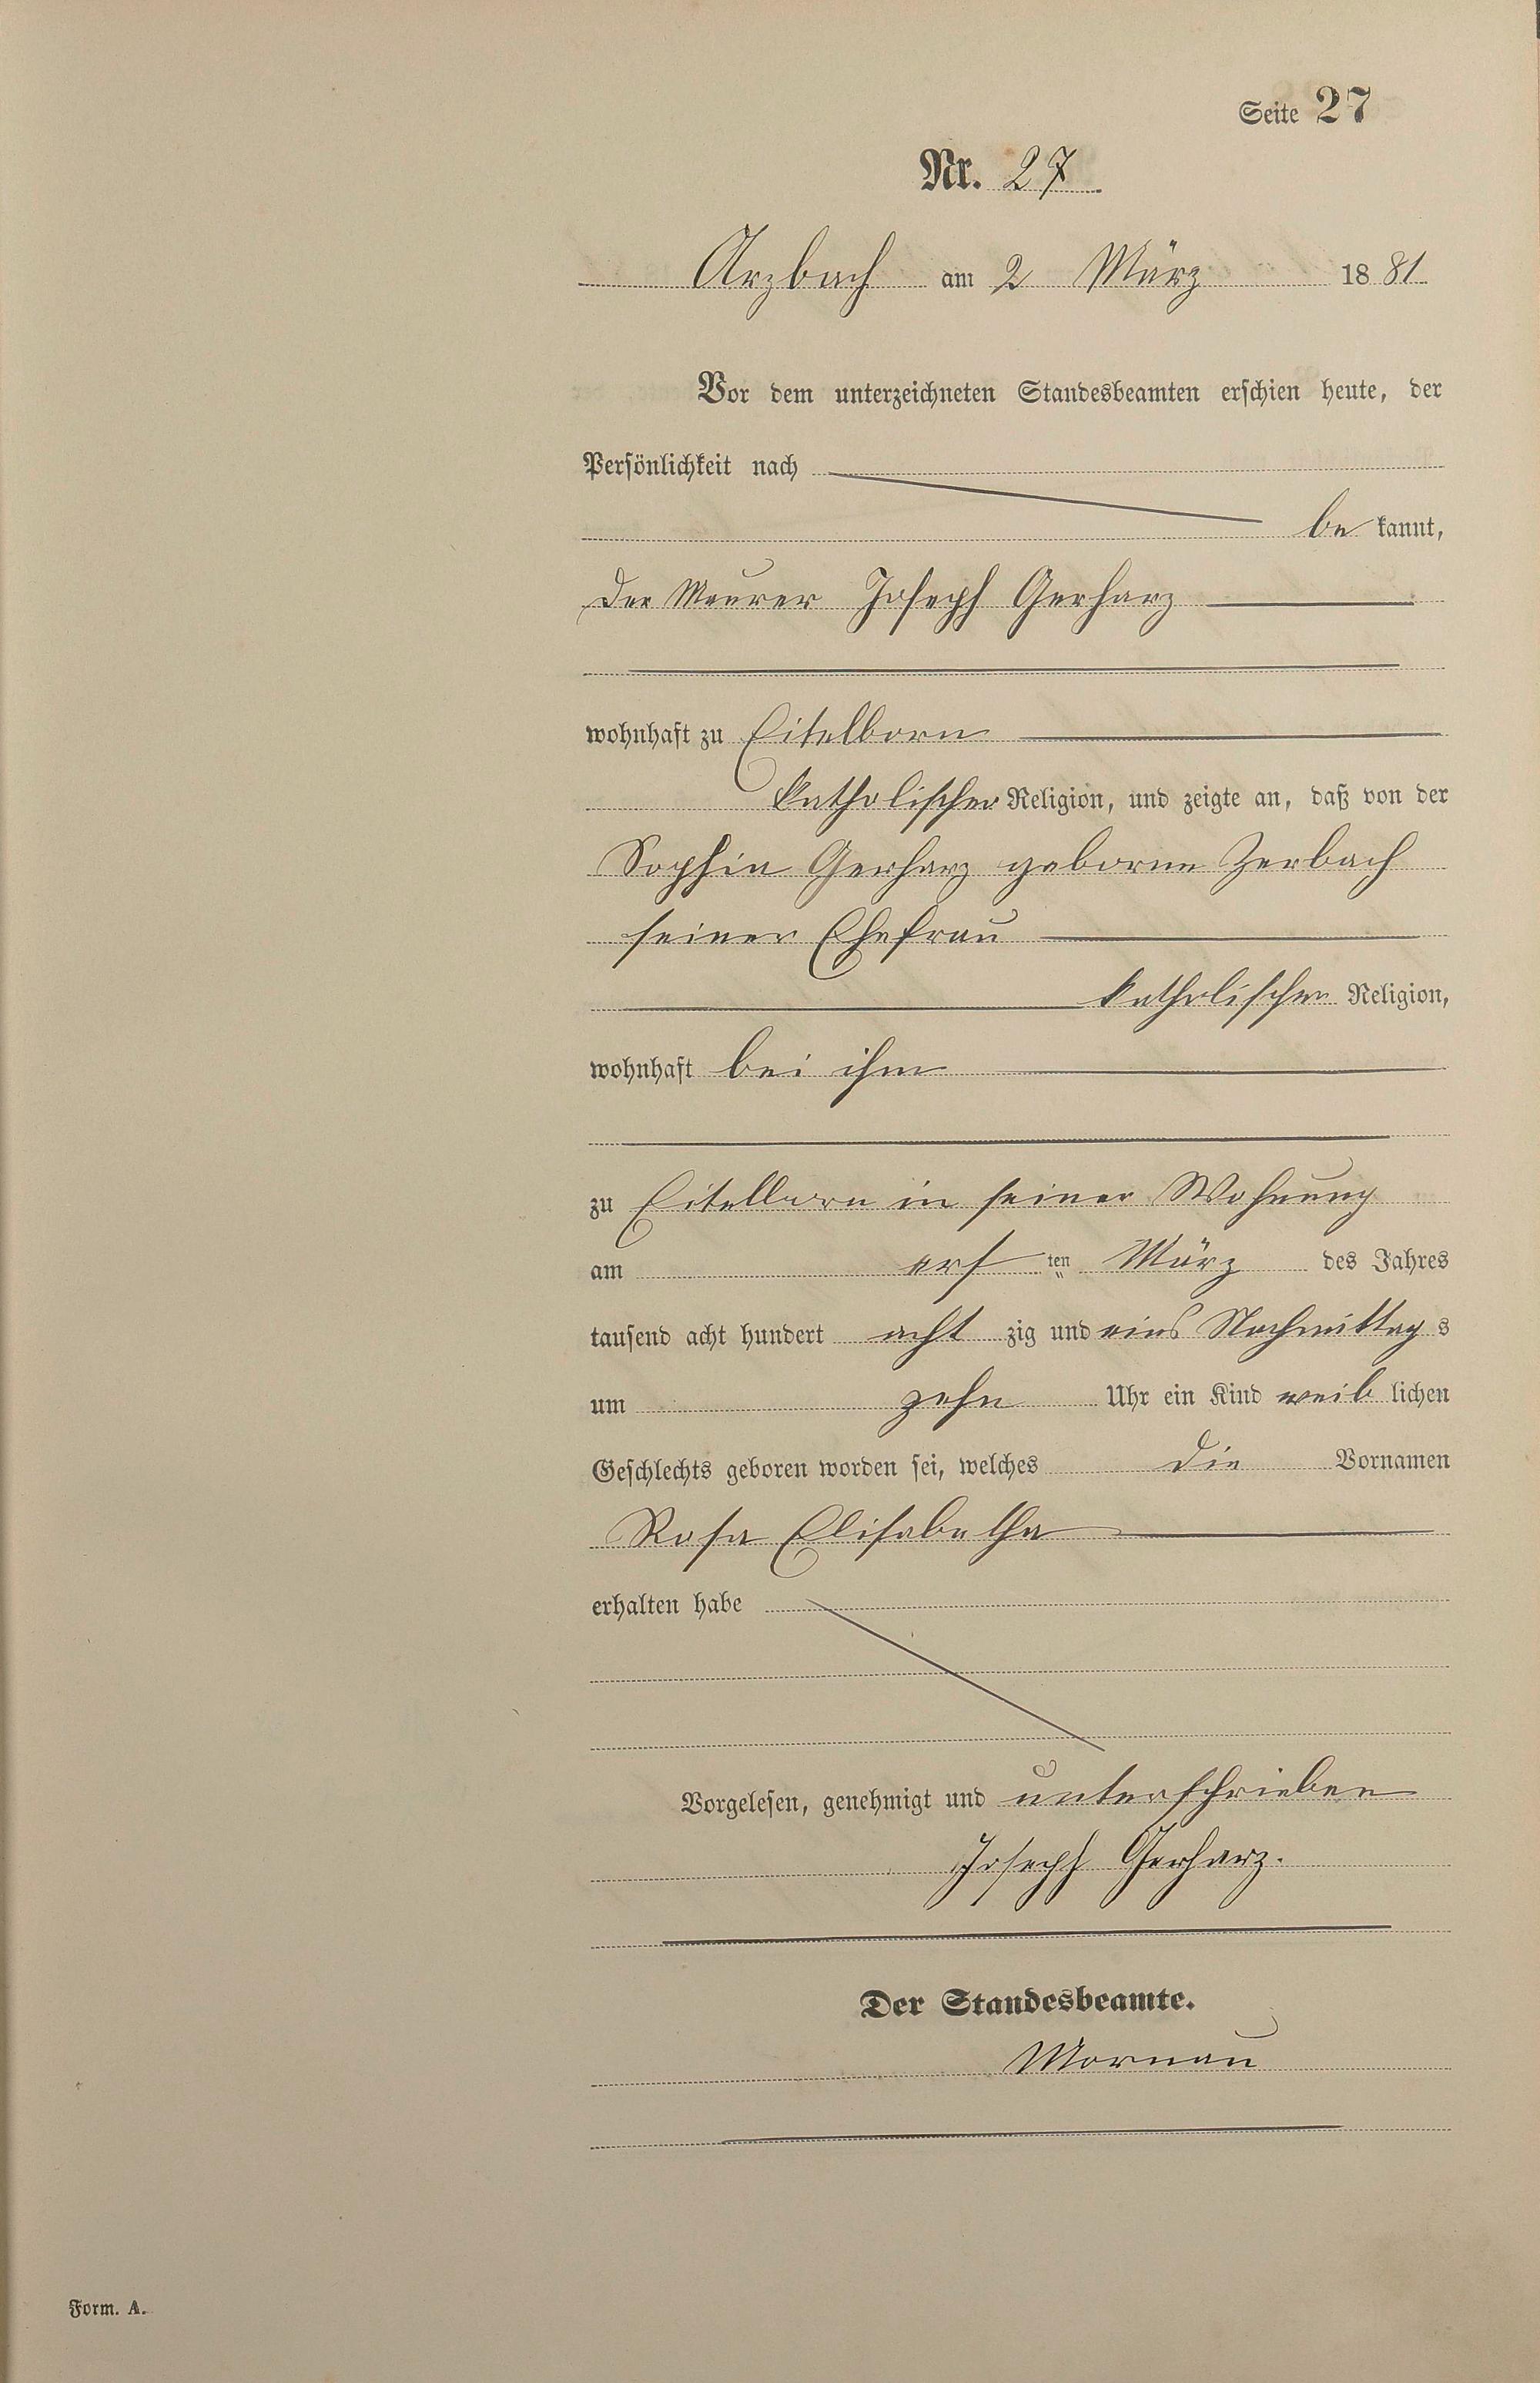 Seite 27
Nr. 27
Arzbach am 2 März 1881
Vor dem unterzeichneten Standesbeamten erschien heute, der
Persönlichkeit nach
be kannt,
der Maurer Joseph Gerharz
wohnhaft zu Eitelborn
katholischer Religion, und zeigte an, daß von der
Sophia Gerharz geborne Zerbach
seiner Ehefrau
katholischer Religion,
wohnhaft bei ihm
zu Eitelborn in seiner Wohnung
am ersten März des Jahres
tausend acht hundert acht zig und eins Nachmittags
um zehn Uhr ein Kind weib lichen
Geschlechts geboren worden sei, welches die Vornamen
Rosa Elisabetha
erhalten habe
Vorgelesen, genehmigt und unterschrieben
Joseph Gerharz.
Der Standesbeamte.
Mornau
Form. A.